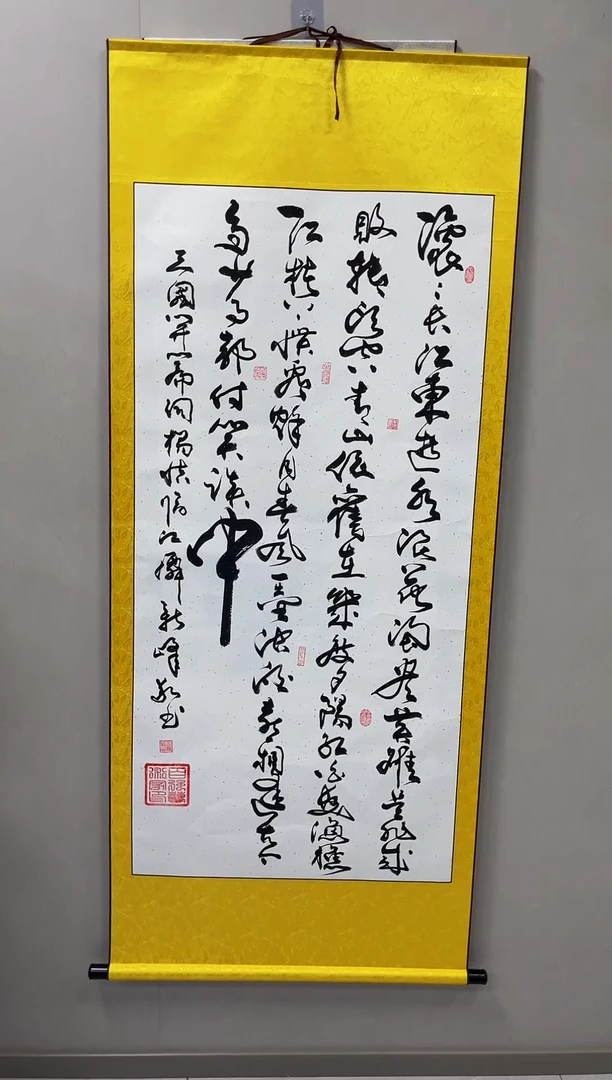 滚〻长江東逝水浪花淘尽英雄是非成
败转头空青山依舊在幾度夕陽红白髮漁樵
江渚上惯看秋月春风一壺浊酒喜相逢古今
多少事都付笑谈中
三國开篇词杨慎临江仙新峰敬书